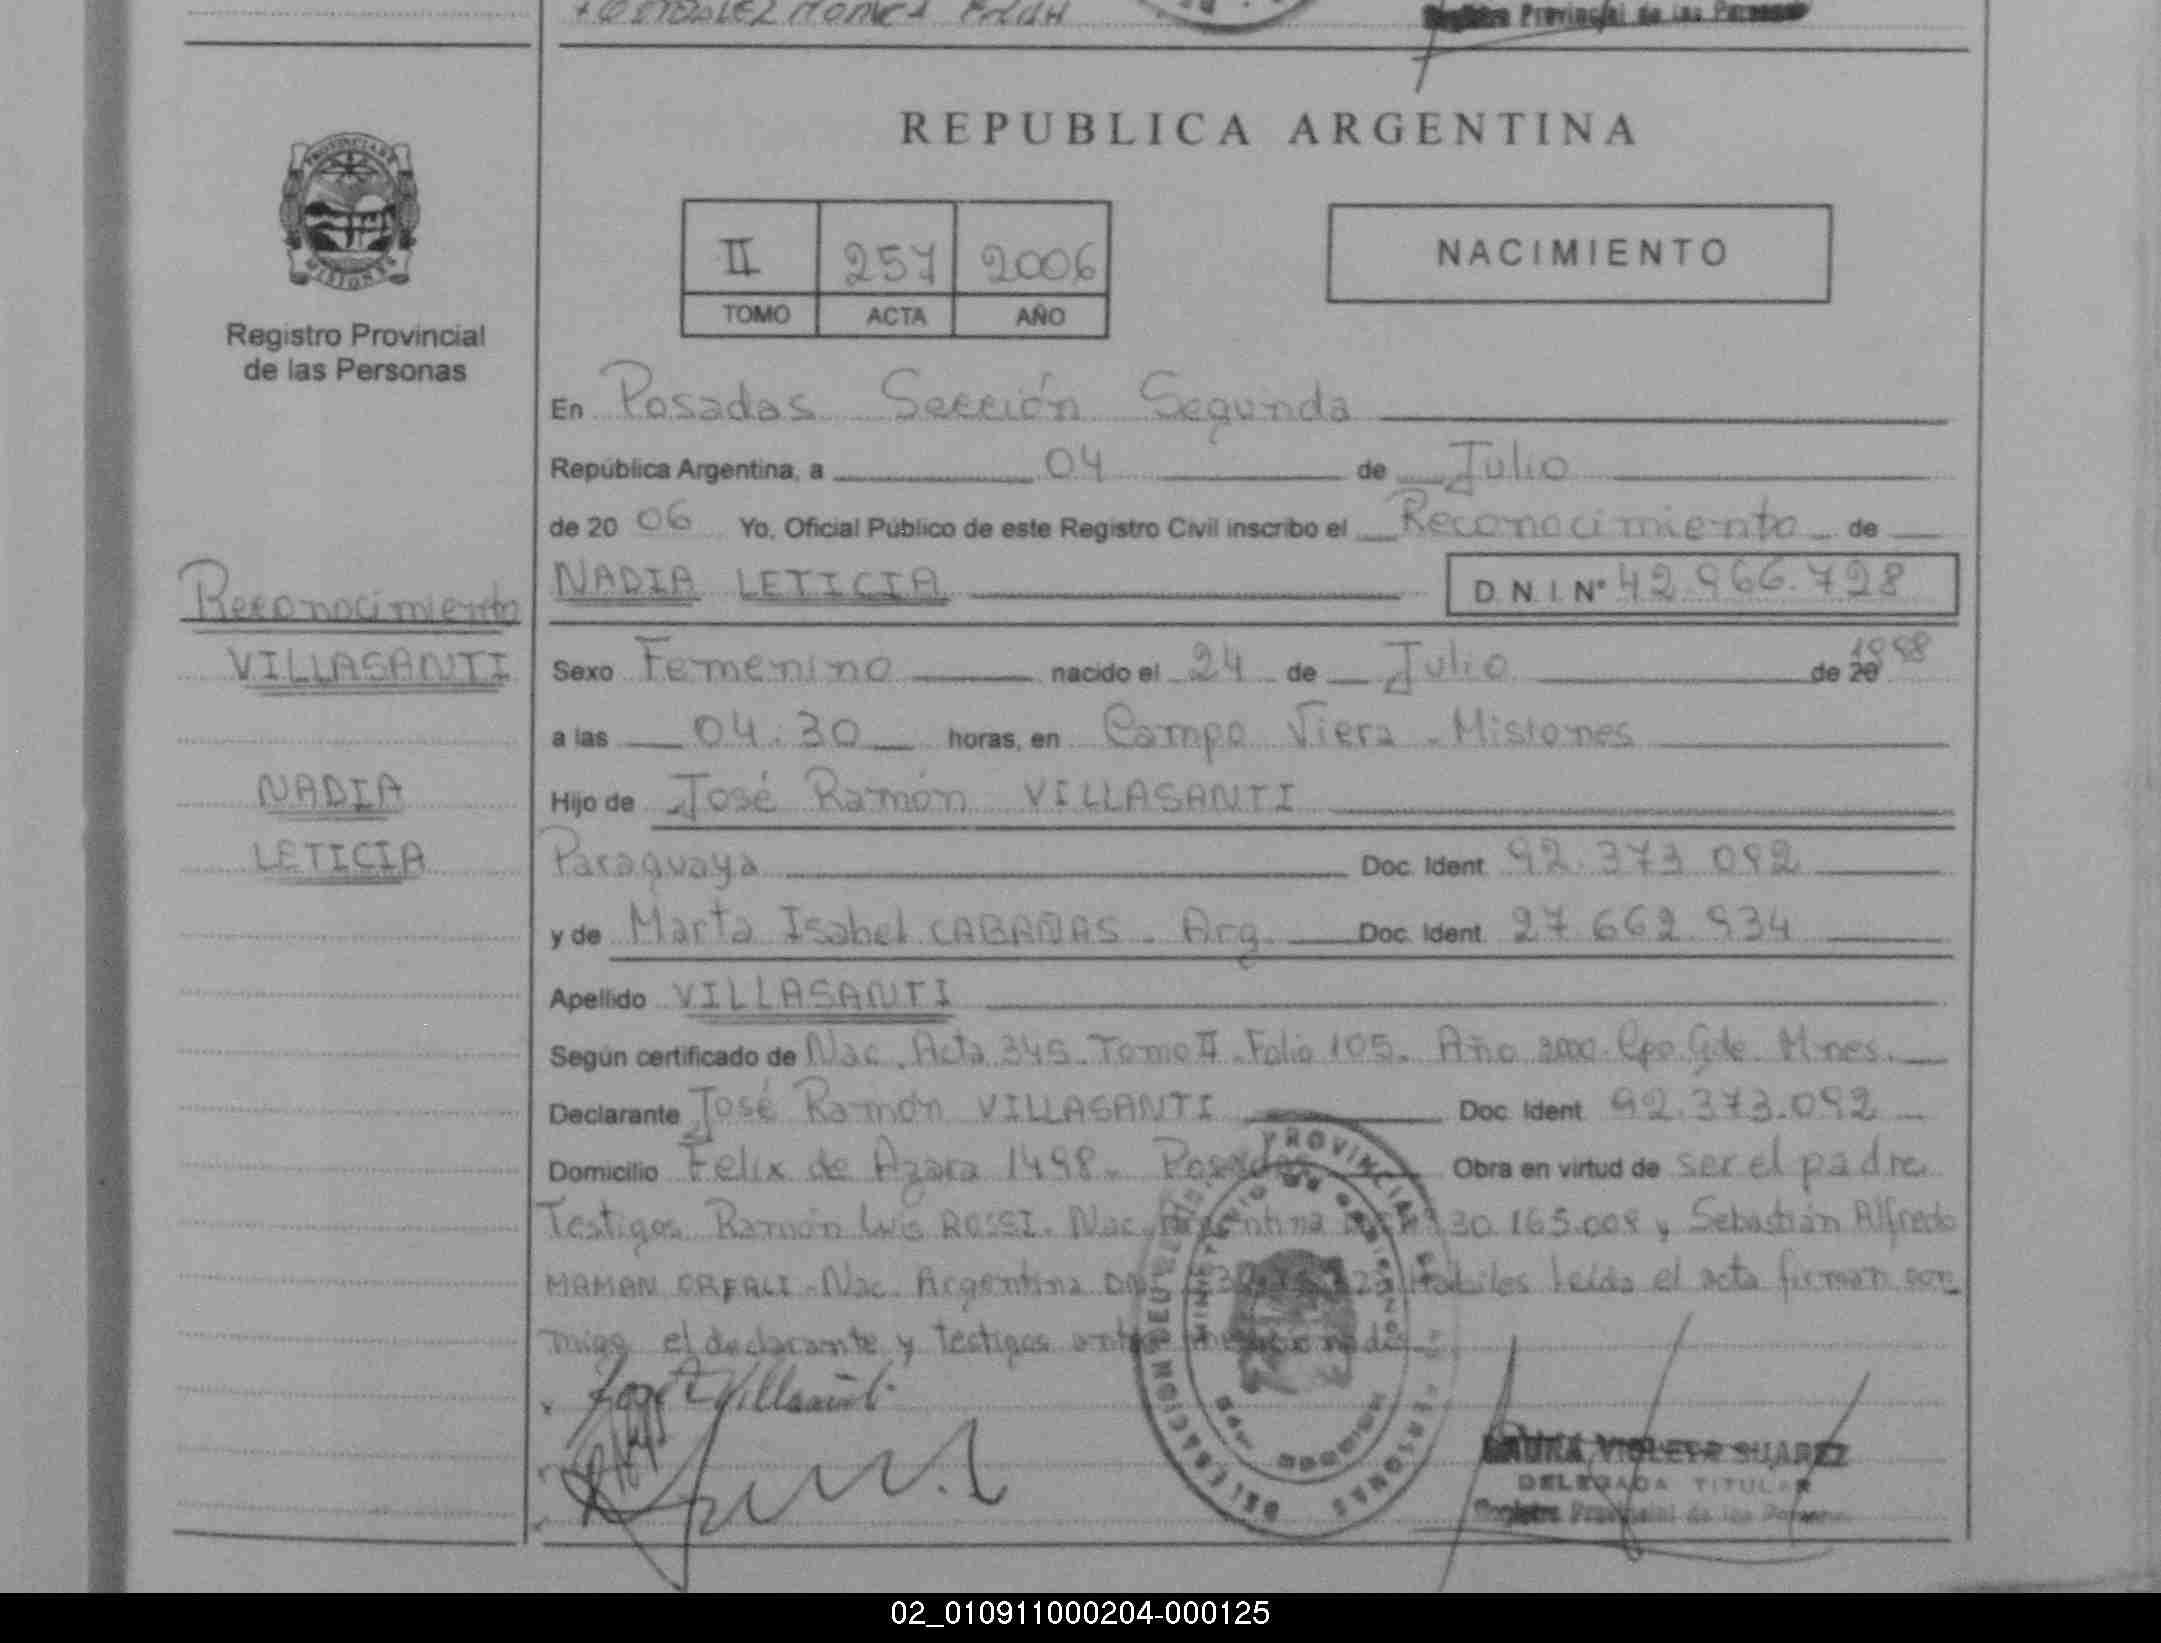 GONZALEZ MONICA
Registro Provincial de las Personas
PROVINCIA DE
MISIONES
Registro Provincial
de las Personas
REPUBLICA ARGENTINA
II 257 2006
TOMO ACTA AÑO
NACIMIENTO
En Posadas Sección Segunda
República Argentina, a 04 de Julio
de 20 06 Yo, Oficial Público de este Registro Civil inscribo el Reconocimiento de
NADIA LETICIA D.N.I. N° 42.966.728
Reconocimiento
VILLASANTI
NADIA
LETICIA
Sexo Femenino nacido el 24 de Julio de 20 1998
a las 04:30 horas, en Campo Viera - Misiones
Hijo de José Ramón VILLASANTI
Paraguaya Doc. Ident. 92.373.092
y de Marta Isabel CABAÑAS - Arg. Doc. Ident. 27.662.934
Apellido VILLASANTI
Según certificado de Nac. Acta 345. Tomo II. Folio 105. Año 2000. Cpo. Gde. Mnes.
Declarante José Ramón VILLASANTI Doc. Ident. 92.373.092
Domicilio Felix de Azara 1498 - Posadas Obra en virtud de ser el padre
Testigos Ramón Luis ROSSI. Nac. Argentina 30.165.009 y Sebastián Alfredo
MAMAN ORFALI - Nac. Argentina DNI Habiles Leída el acta firman con-
migo el declarante y testigos antes mencionados
José R Villasanti
LAURA VIOLETA SUAREZ
DELEGADA TITULAR
Registro Provincial de las Personas
02_010911000204-000125